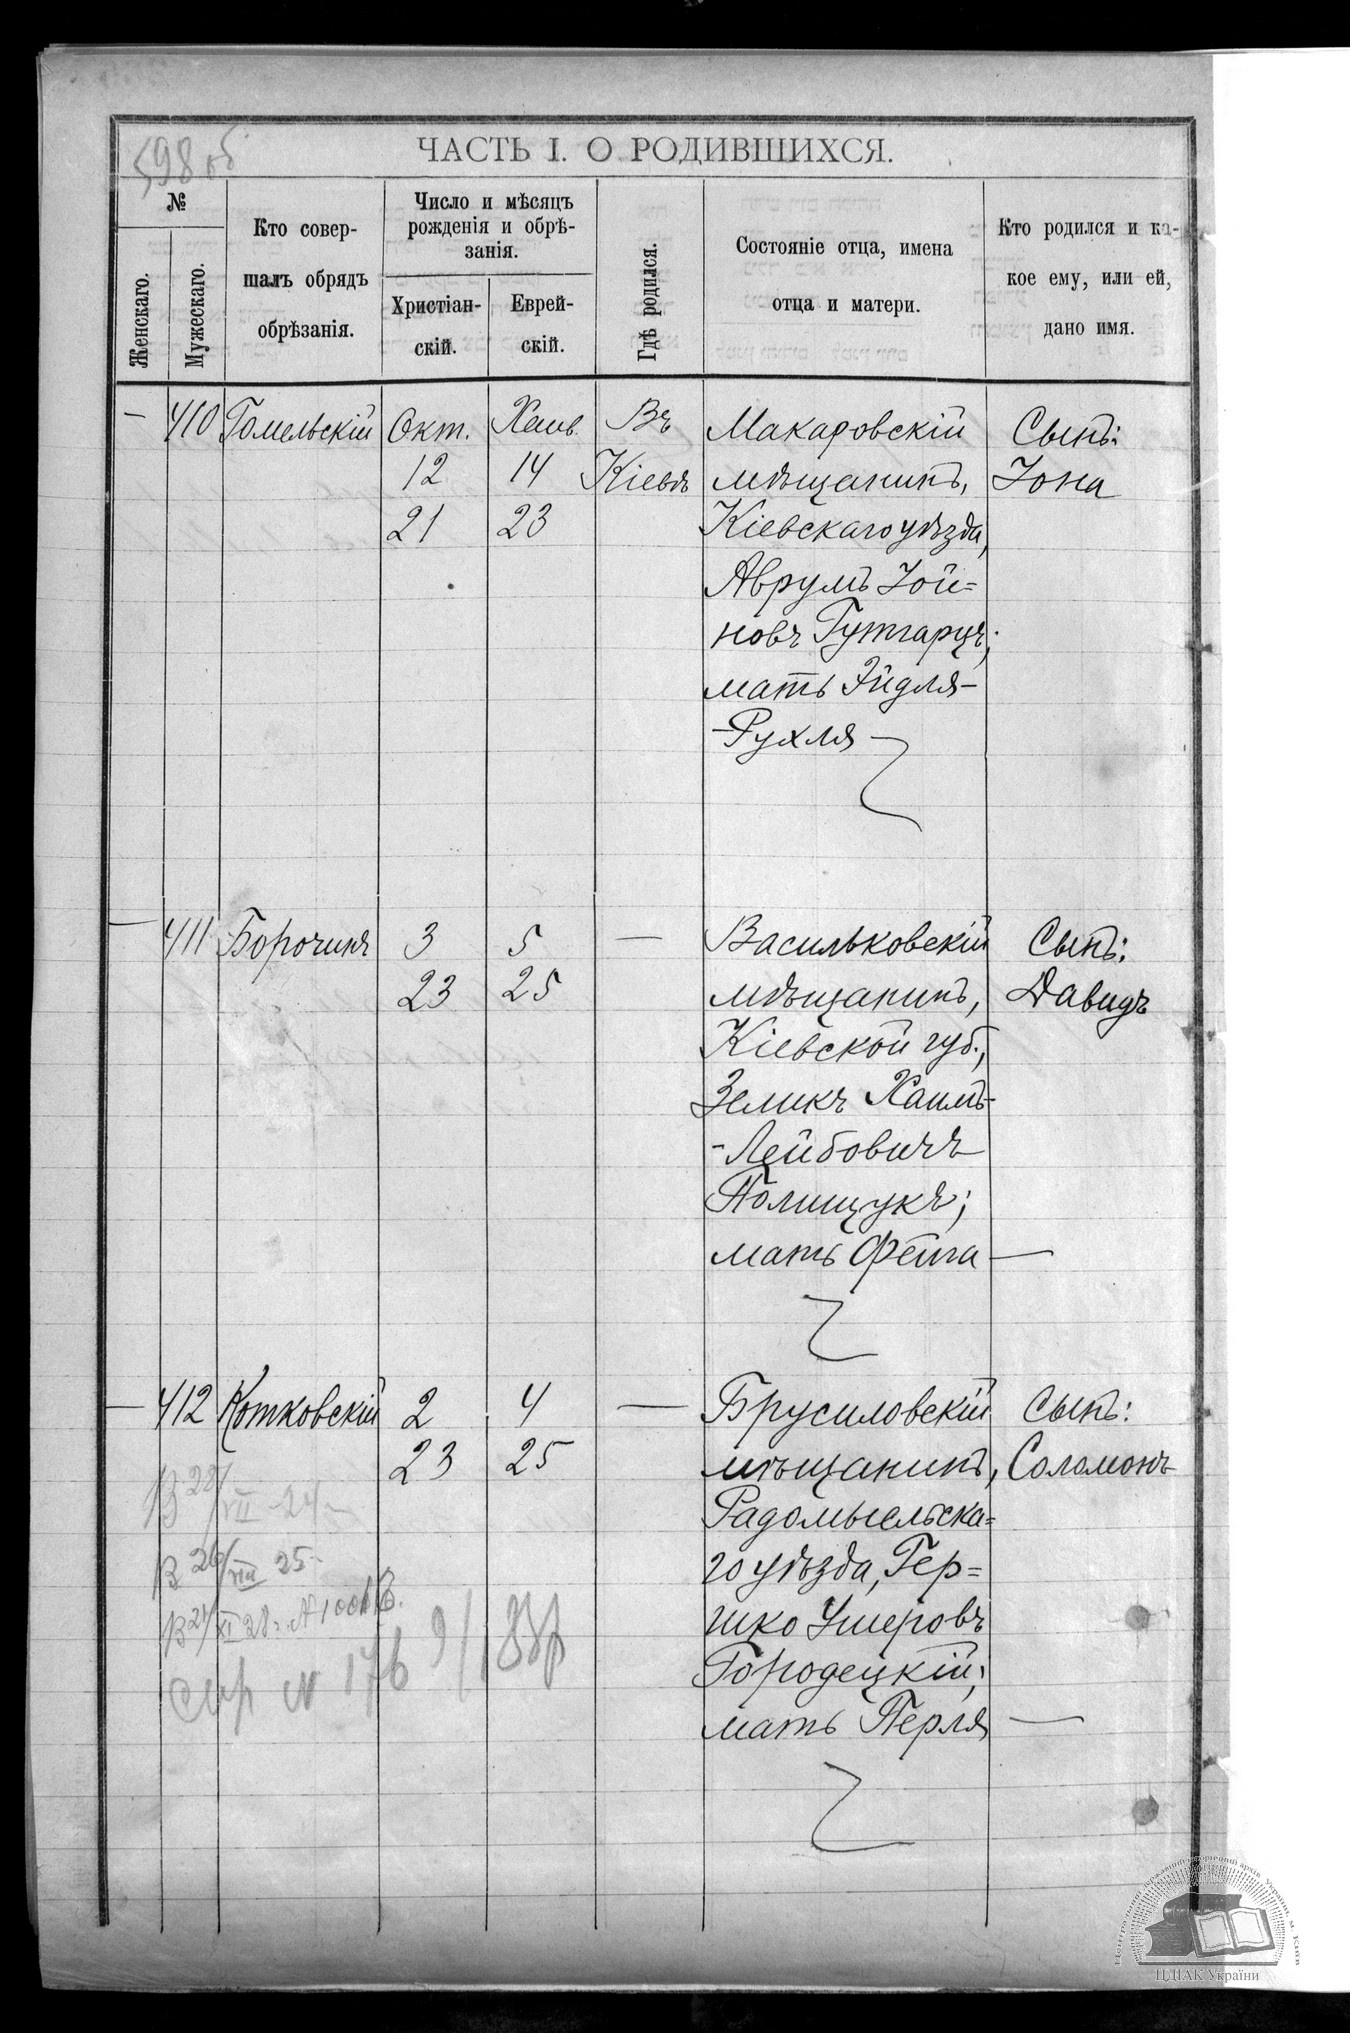 598 об
ЧАСТЬ I. О РОДИВШИХСЯ.
№
Женскаго.
Мужескаго.
Кто совер-
шалъ обрядъ
обрѣзанія.
Число и мѣсяцъ
рожденія и обрѣ-
занія.
Христіан-
скій.
Еврей-
скій.
Гдѣ родился.
Состояніе отца, имена
отца и матери.
Кто родился и ка-
кое ему, или ей,
дано имя.
— 410 Гомельскій Окт. Хешв. Въ Макаровскій Сынъ:
12 14 Кіевѣ мѣщанинъ, Іона
21 23 Кіевскаго уѣзда,
Аврумъ Іой-
новъ Гутгарцъ;
мать Эйдля-
-Рухля —
— 411 Борочинъ 3 5 — Васильковскій Сынъ:
23 25 мѣщанинъ, Давидъ
Кіевской губ.,
Зеликъ Хаимъ-
-Лейбовичъ
Полищукъ;
мать Фейга —
— 412 Котковскій 2 4 — Брусиловскій Сынъ:
23 25 мѣщанинъ, Соломонъ
Радомысльска-
го уѣзда, Гер-
шко Умеровъ
Городецкій;
мать Перля —
В 22/VII -24-
В 26/VIII 25-
В 21/XI 28 г. № 1001
спр № 176
ЦДІАК України